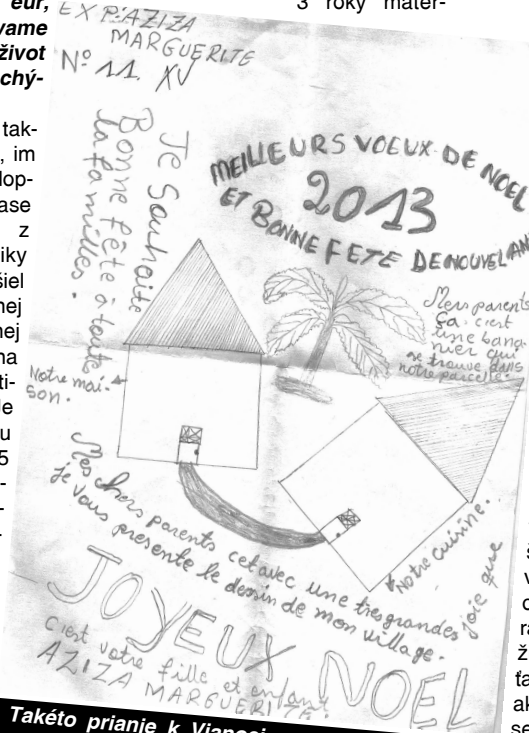 eur,
vame
život
chý-
tak-
, im
lop-
ase
z
iky
šiel
nej
nej
na
ti-
Je
u
5
-
-
3 roky mater-
EXP: AZIZA
MARGUERITE
N° 11. XV
Je Souhaite
Bonne fête à toute
la familles.
MEILLEURS VOEUX DE NOEL
2013
ET BONNE FETE DE NOUVEL AN
Mers parents
Ça c'est
une bana-
nier qui
se trouve dans
notre parcelle.
Notre mai-
son.
Notre Cuisine.
Mes chers parents cet avec une tres grandes joie que
je vous presente le dessin de mon village.
JOYEUX NOEL
C'est votre fille et enfant
AZIZA MARGUERITE.
š
v
c
ra
ž
ťa
ak
se
Takéto prianje k Vianoci